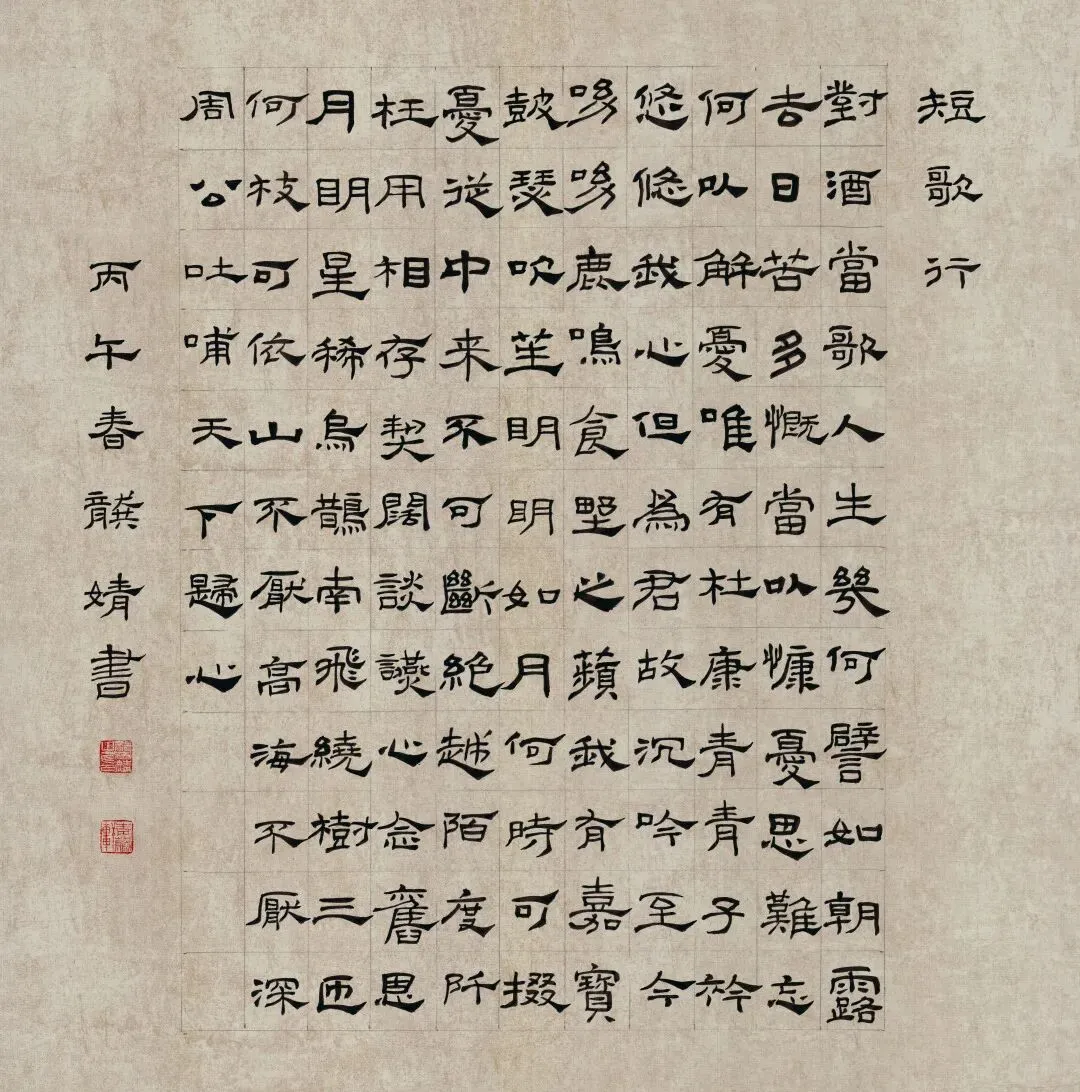 短歌行
對酒當歌人生幾何譬如朝露
去日苦多慨當以慷憂思難忘
何以解憂唯有杜康青青子衿
悠悠我心但為君故沉吟至今
呦呦鹿鳴食野之蘋我有嘉寶
鼓瑟吹笙明明如月何時可掇
憂從中来不可斷絕越陌度阡
枉用相存契闊談讌心念舊恩
月明星稀烏鵲南飛繞樹三匝
何枝可依山不厭高海不厭深
周公吐哺天下歸心
丙午春龔婧書